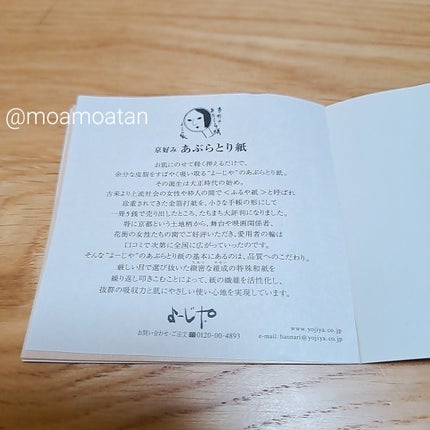 @moamoatan
京好み あぶらとり紙
お肌にのせて軽く押えるだけで、
余分な皮脂をすばやく吸い取る“よーじや”のあぶらとり紙。
その誕生は大正時代の始め。
古来より上流社会の女性や粋人の間で＜ふるや紙＞と呼ばれ
珍重されてきた金箔打紙を、小さな手帳の形にして
一冊5銭で売り出したところ、たちまち大評判になりました。
特に京都という土地柄から、舞台や映画関係者、
花街の女性たちの間でご好評いただき、愛用者の輪は
口コミで次第に全国に広がっていったのです。
そんな“よーじや”のあぶらとり紙の基本にあるのは、品質へのこだわり。
厳しい目で選び抜いた緻密な組成の特殊和紙を
繰り返し叩きこむことによって、紙の繊維を活性化し、
抜群の吸収力と肌にやさしい使い心地を実現しています。
よーじや
お問い合わせ・ご注文 ☎0120-00-4893
www.yojiya.co.jp
e-mail: hannari@yojiya.co.jp